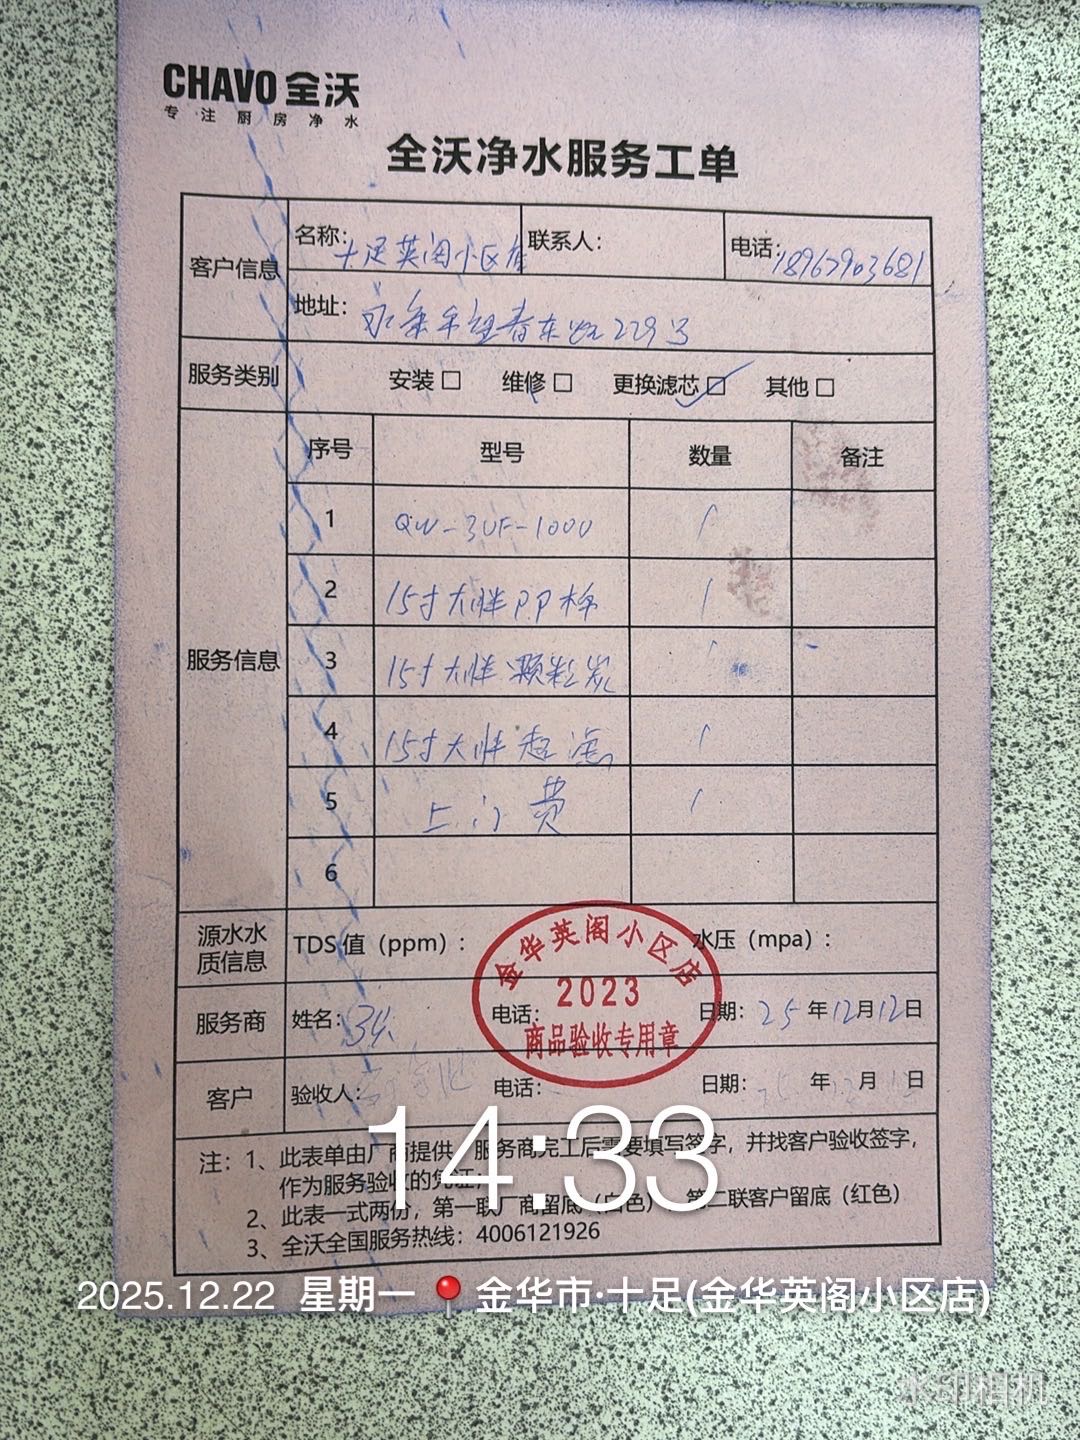 CHAVO 全沃
专注厨房净水
全沃净水服务工单
客户信息
名称：十足英阁小区店
联系人：
电话：18967903681
地址：永康市望春东路229号
服务类别
安装□ 维修□ 更换滤芯□ 其他□
服务信息
序号 型号 数量 备注
1 QW-3UF-1000 1
2 15寸大胖PP棉 1
3 15寸大胖颗粒炭 1
4 15寸大胖超滤 1
5 上门费 1
6
源水水质信息
TDS值（ppm）： 水压（mpa）：
服务商 姓名： 电话： 日期：25年12月12日
客户 验收人： 电话： 日期：25年12月 日
金华英阁小区店
2023
商品验收专用章
注：1、此表单由厂商提供，服务商完工后需要填写签字，并找客户验收签字，
作为服务验收的凭证；
2、此表一式两份，第一联厂商留底（白色），第二联客户留底（红色）
3、全沃全国服务热线：4006121926
14:33
2025.12.22 星期一 金华市·十足(金华英阁小区店)
水印相机